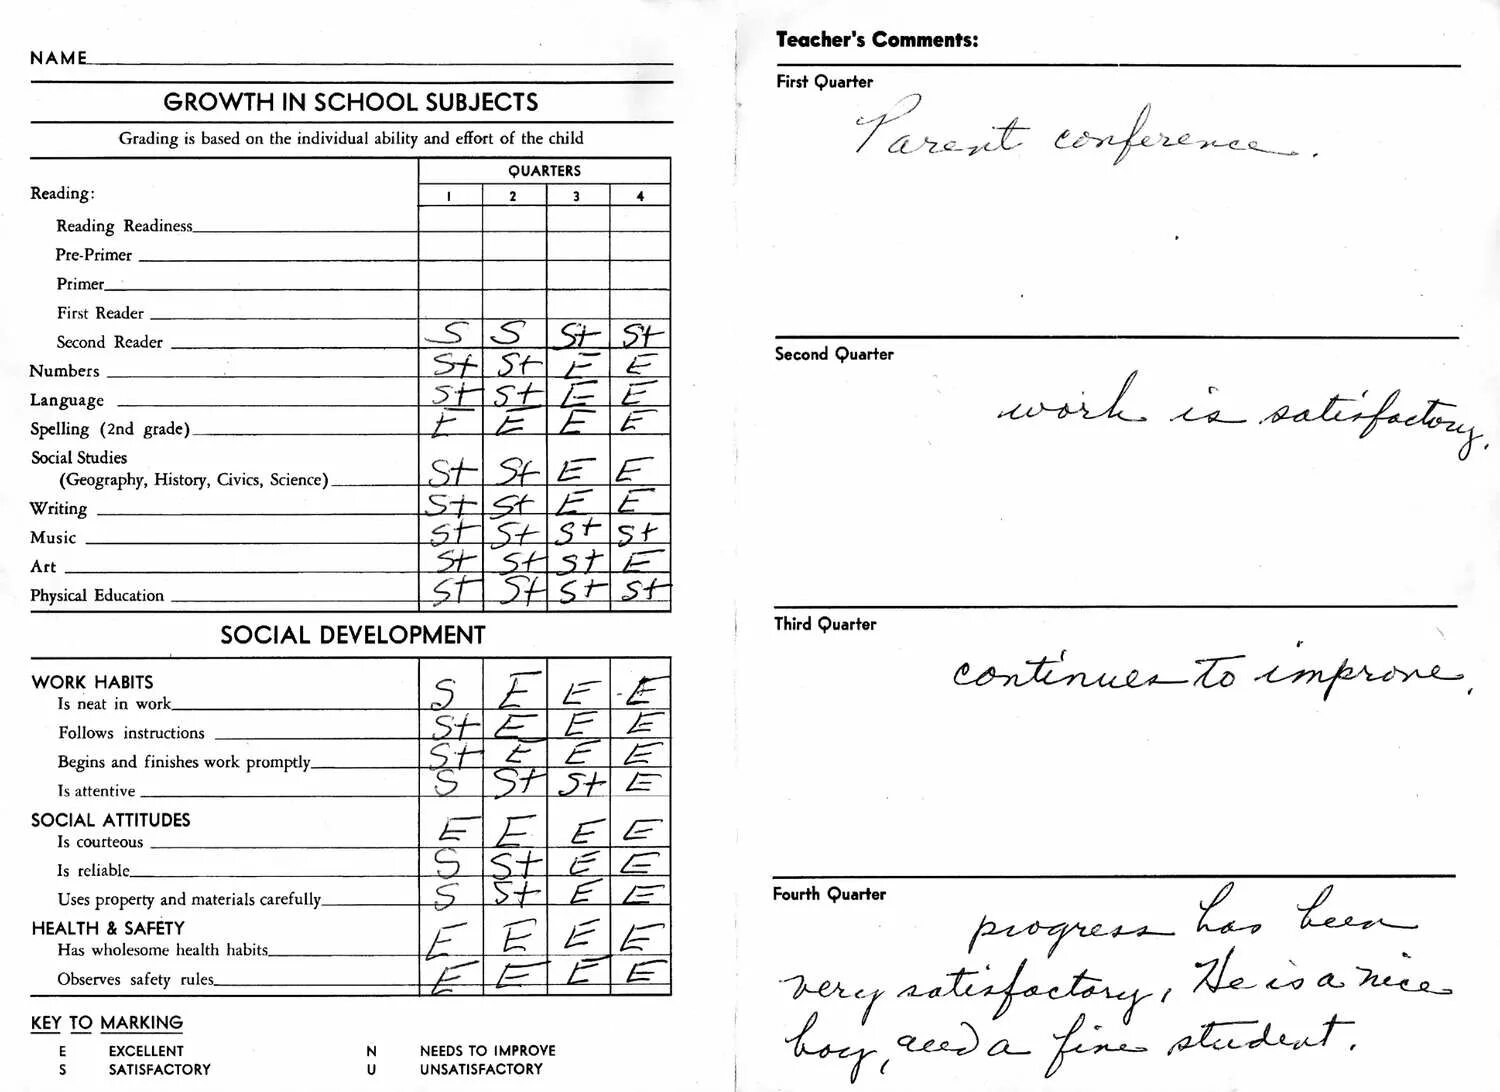 NAME
GROWTH IN SCHOOL SUBJECTS
Grading is based on the individual ability and effort of the child
QUARTERS
Reading: 1 2 3 4
Reading Readiness
Pre-Primer
Primer
First Reader
Second Reader S S S+ S+
Numbers S+ S+ E E
Language S+ S+ E E
Spelling (2nd grade) E E E E
Social Studies
(Geography, History, Civics, Science) S+ S+ E E
Writing S+ S+ E E
Music S+ S+ S+ S+
Art S+ S+ S+ E
Physical Education S+ S+ S+ S+
SOCIAL DEVELOPMENT
WORK HABITS
Is neat in work S E E E
Follows instructions S+ E E E
Begins and finishes work promptly S+ E E E
Is attentive S S+ S+ E
SOCIAL ATTITUDES
Is courteous E E E E
Is reliable S S+ E E
Uses property and materials carefully S S+ E E
HEALTH & SAFETY
Has wholesome health habits E E E E
Observes safety rules E E E E
KEY TO MARKING
E EXCELLENT N NEEDS TO IMPROVE
S SATISFACTORY U UNSATISFACTORY
Teacher's Comments:
First Quarter
Parent conference.
Second Quarter
work is satisfactory.
Third Quarter
continues to improve.
Fourth Quarter
progress has been
very satisfactory, He is a nice
boy, and a fine student.